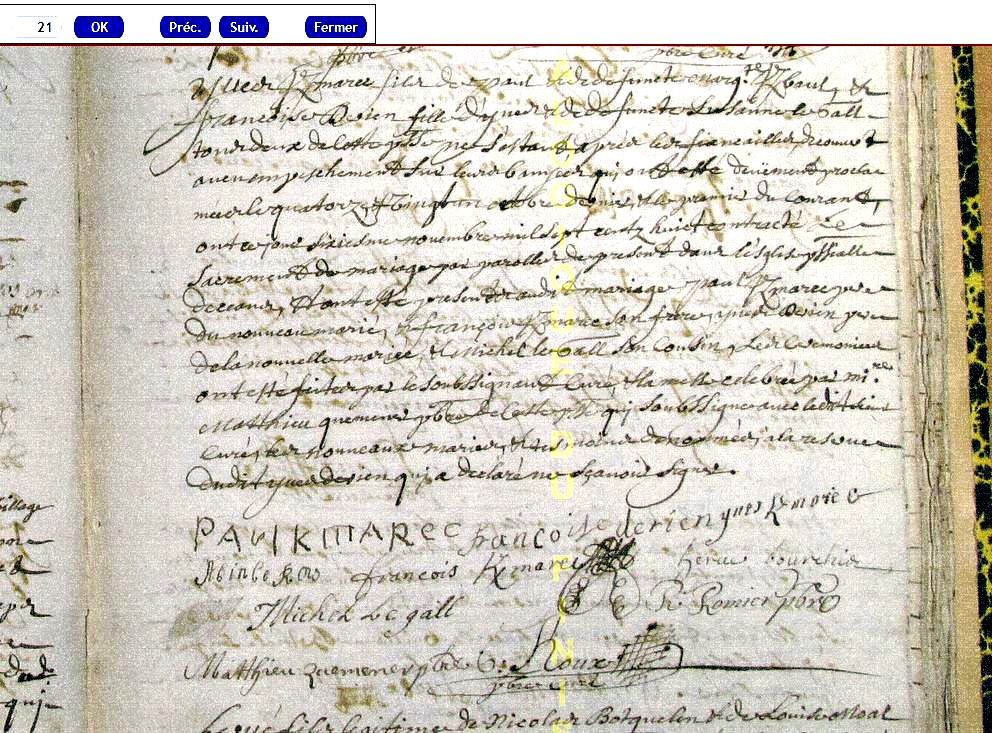 21 OK Préc. Suiv. Fermer
pbre curé
Kmarec fils de paul et de defuncte marg.te Kbaul, et
francoise Derien fille d'yves et de defuncte Susanne le Gall
tous deux de cette psse ne s'estant après les fiancailles decouvert
aucun empeschement sur leurs bans qui ont esté deuëment procla
més le quatorze, et vingt un octobre dernier, et le premier du courant,
ont ce jour sixiesme novembre mil sept centz huict contracté Le
Sacrement de mariage par parolles de present dans l'eglise pssialle
de ceans, et ont esté presents audit mariage paul Kmarec pere
du nouveau marié, et françois Kmarec son frere, yves Derien pere
de la nouvelle mariée, et Michel le Gall son cousin, les ceremonies
ont esté faites par le soubssignant Curé, et la messe celebrée par mi.re
Matthieu quemener pbre de cette psse qui soubssigne avec ledit sieur
Curé, les nouveaux mariés, et denommés, a la reserve
dudit yves derien qui a declaré ne sçavoir signer.
PAUL KMAREC francoise derien yves Kmarec
francois Kmarec herve bourchis
Michel Le gall R. Romier pbre
Matthieu quemener pbre G. Roux
pbre curé
fils legitime de Nicolas Botquelen et de Louise moal